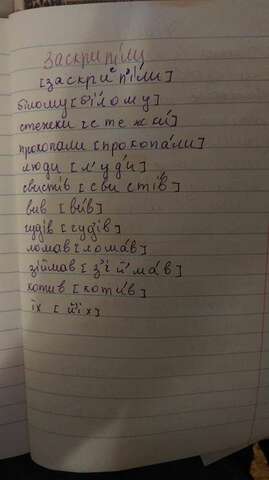 заскрипіли
[заскри п'іли]
білому [б'ілому]
стежки [стежки́]
прокопали [прокопа́ли]
люди [л'у́ди]
свистів [свисті́в]
вив [вив]
гудів [гудів]
ломав [лома́в]
зіймав [з'ійма́в]
котив [коти́в]
їх [йіх]